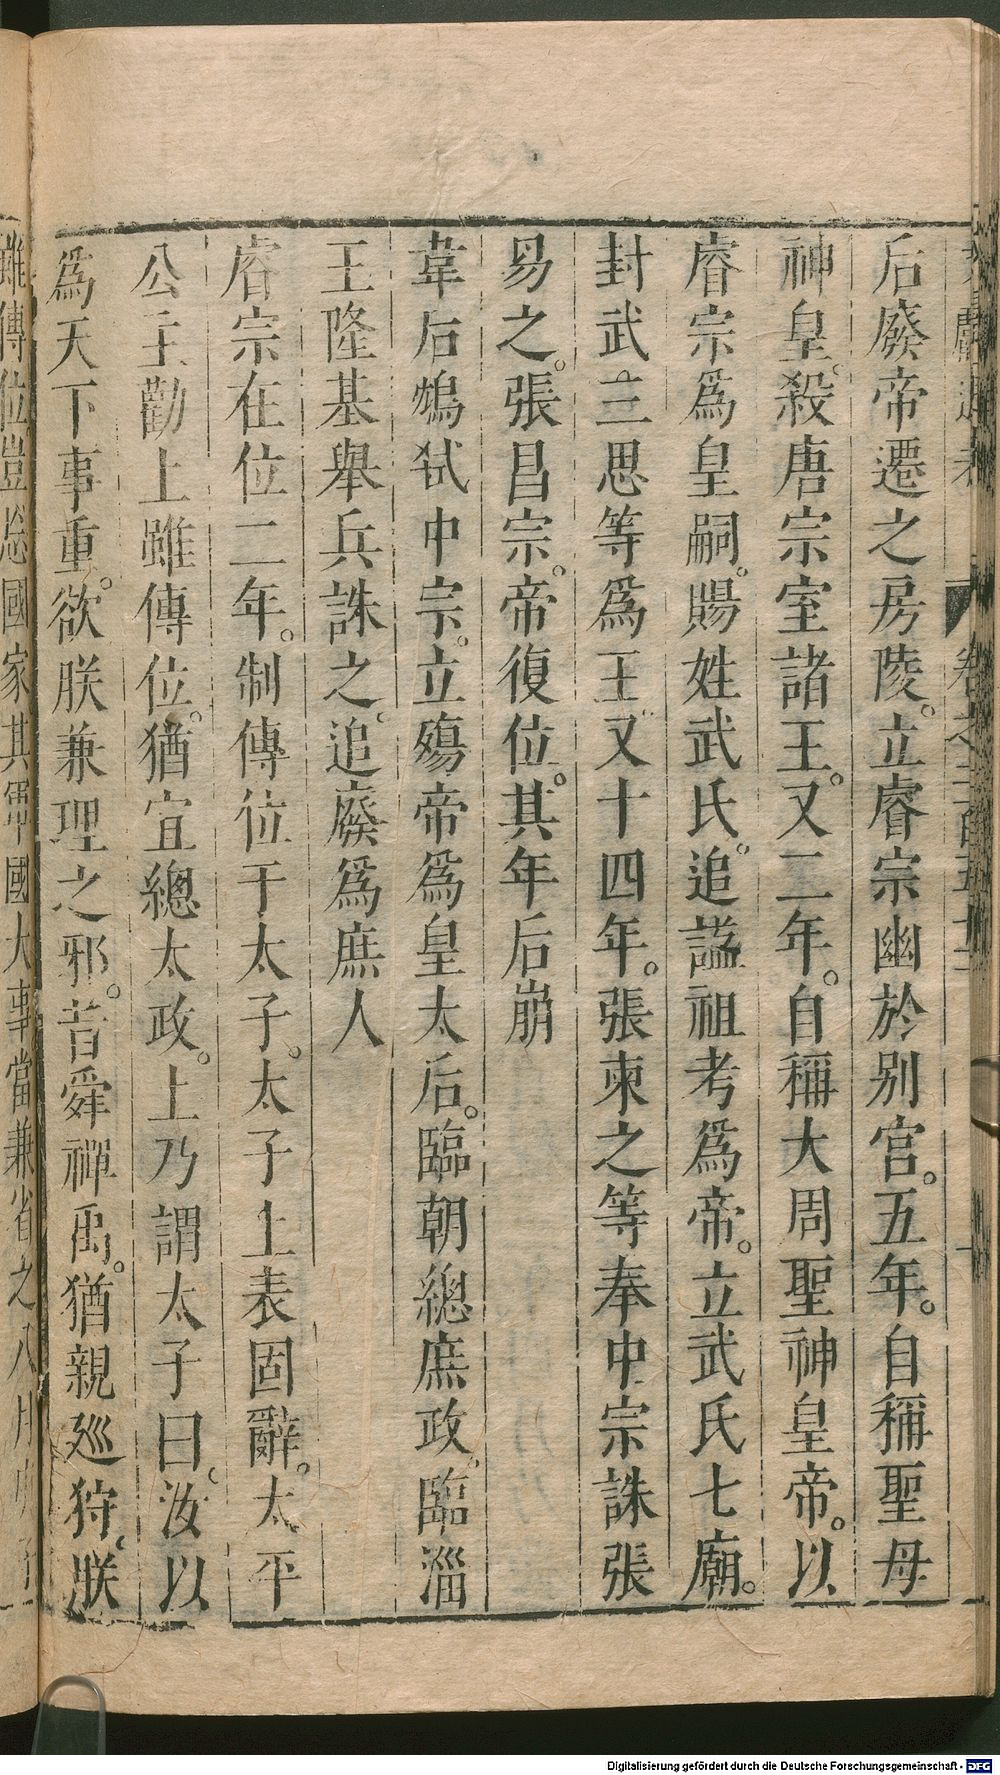 文獻通考 卷之二百五十二
后廢帝遷之房陵。立睿宗幽於别宫。五年。自稱聖母
神皇。殺唐宗室諸王。又二年。自稱大周聖神皇帝。以
睿宗爲皇嗣。賜姓武氏。追謚祖考爲帝。立武氏七廟。
封武三思等爲王又十四年。張柬之等奉中宗誅張
易之。張昌宗。帝復位。其年后崩
韋后鴆弑中宗。立殤帝爲皇太后。臨朝總庶政。臨淄
王隆基舉兵誅之。追廢爲庶人
睿宗在位二年。制傳位于太子。太子上表固辭。太平
公主勸上雖傳位。猶宜總太政。上乃謂太子曰。汝以
爲天下事重。欲朕兼理之邪。昔舜禪禹。猶親廵狩。朕
雖傳位豈忘國家其軍國大事當兼省之八月
Digitalisierung gefördert durch die Deutsche Forschungsgemeinschaft - DFG